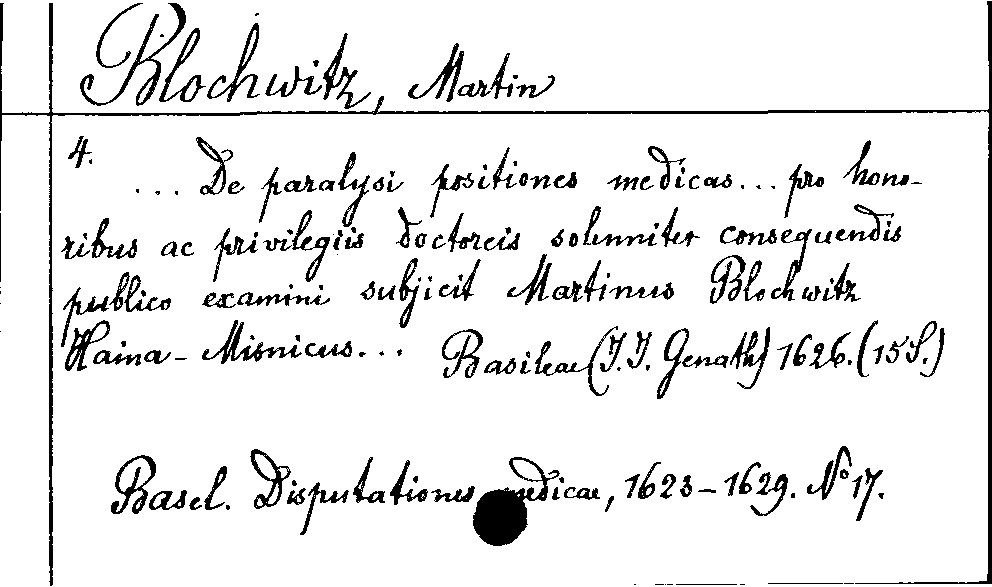 Blochwitz, Martin
4.
... De paralysi positiones medicas... pro hono-
ribus ac privilegiis doctoreis solenniter consequendis
publico examini subjicit Martinus Blochwitz
Haina-Misnicus... Basileae (J.J. Genath) 1626. (15 S.)
Basel. Disputationes medicae, 1623-1629. No 17.